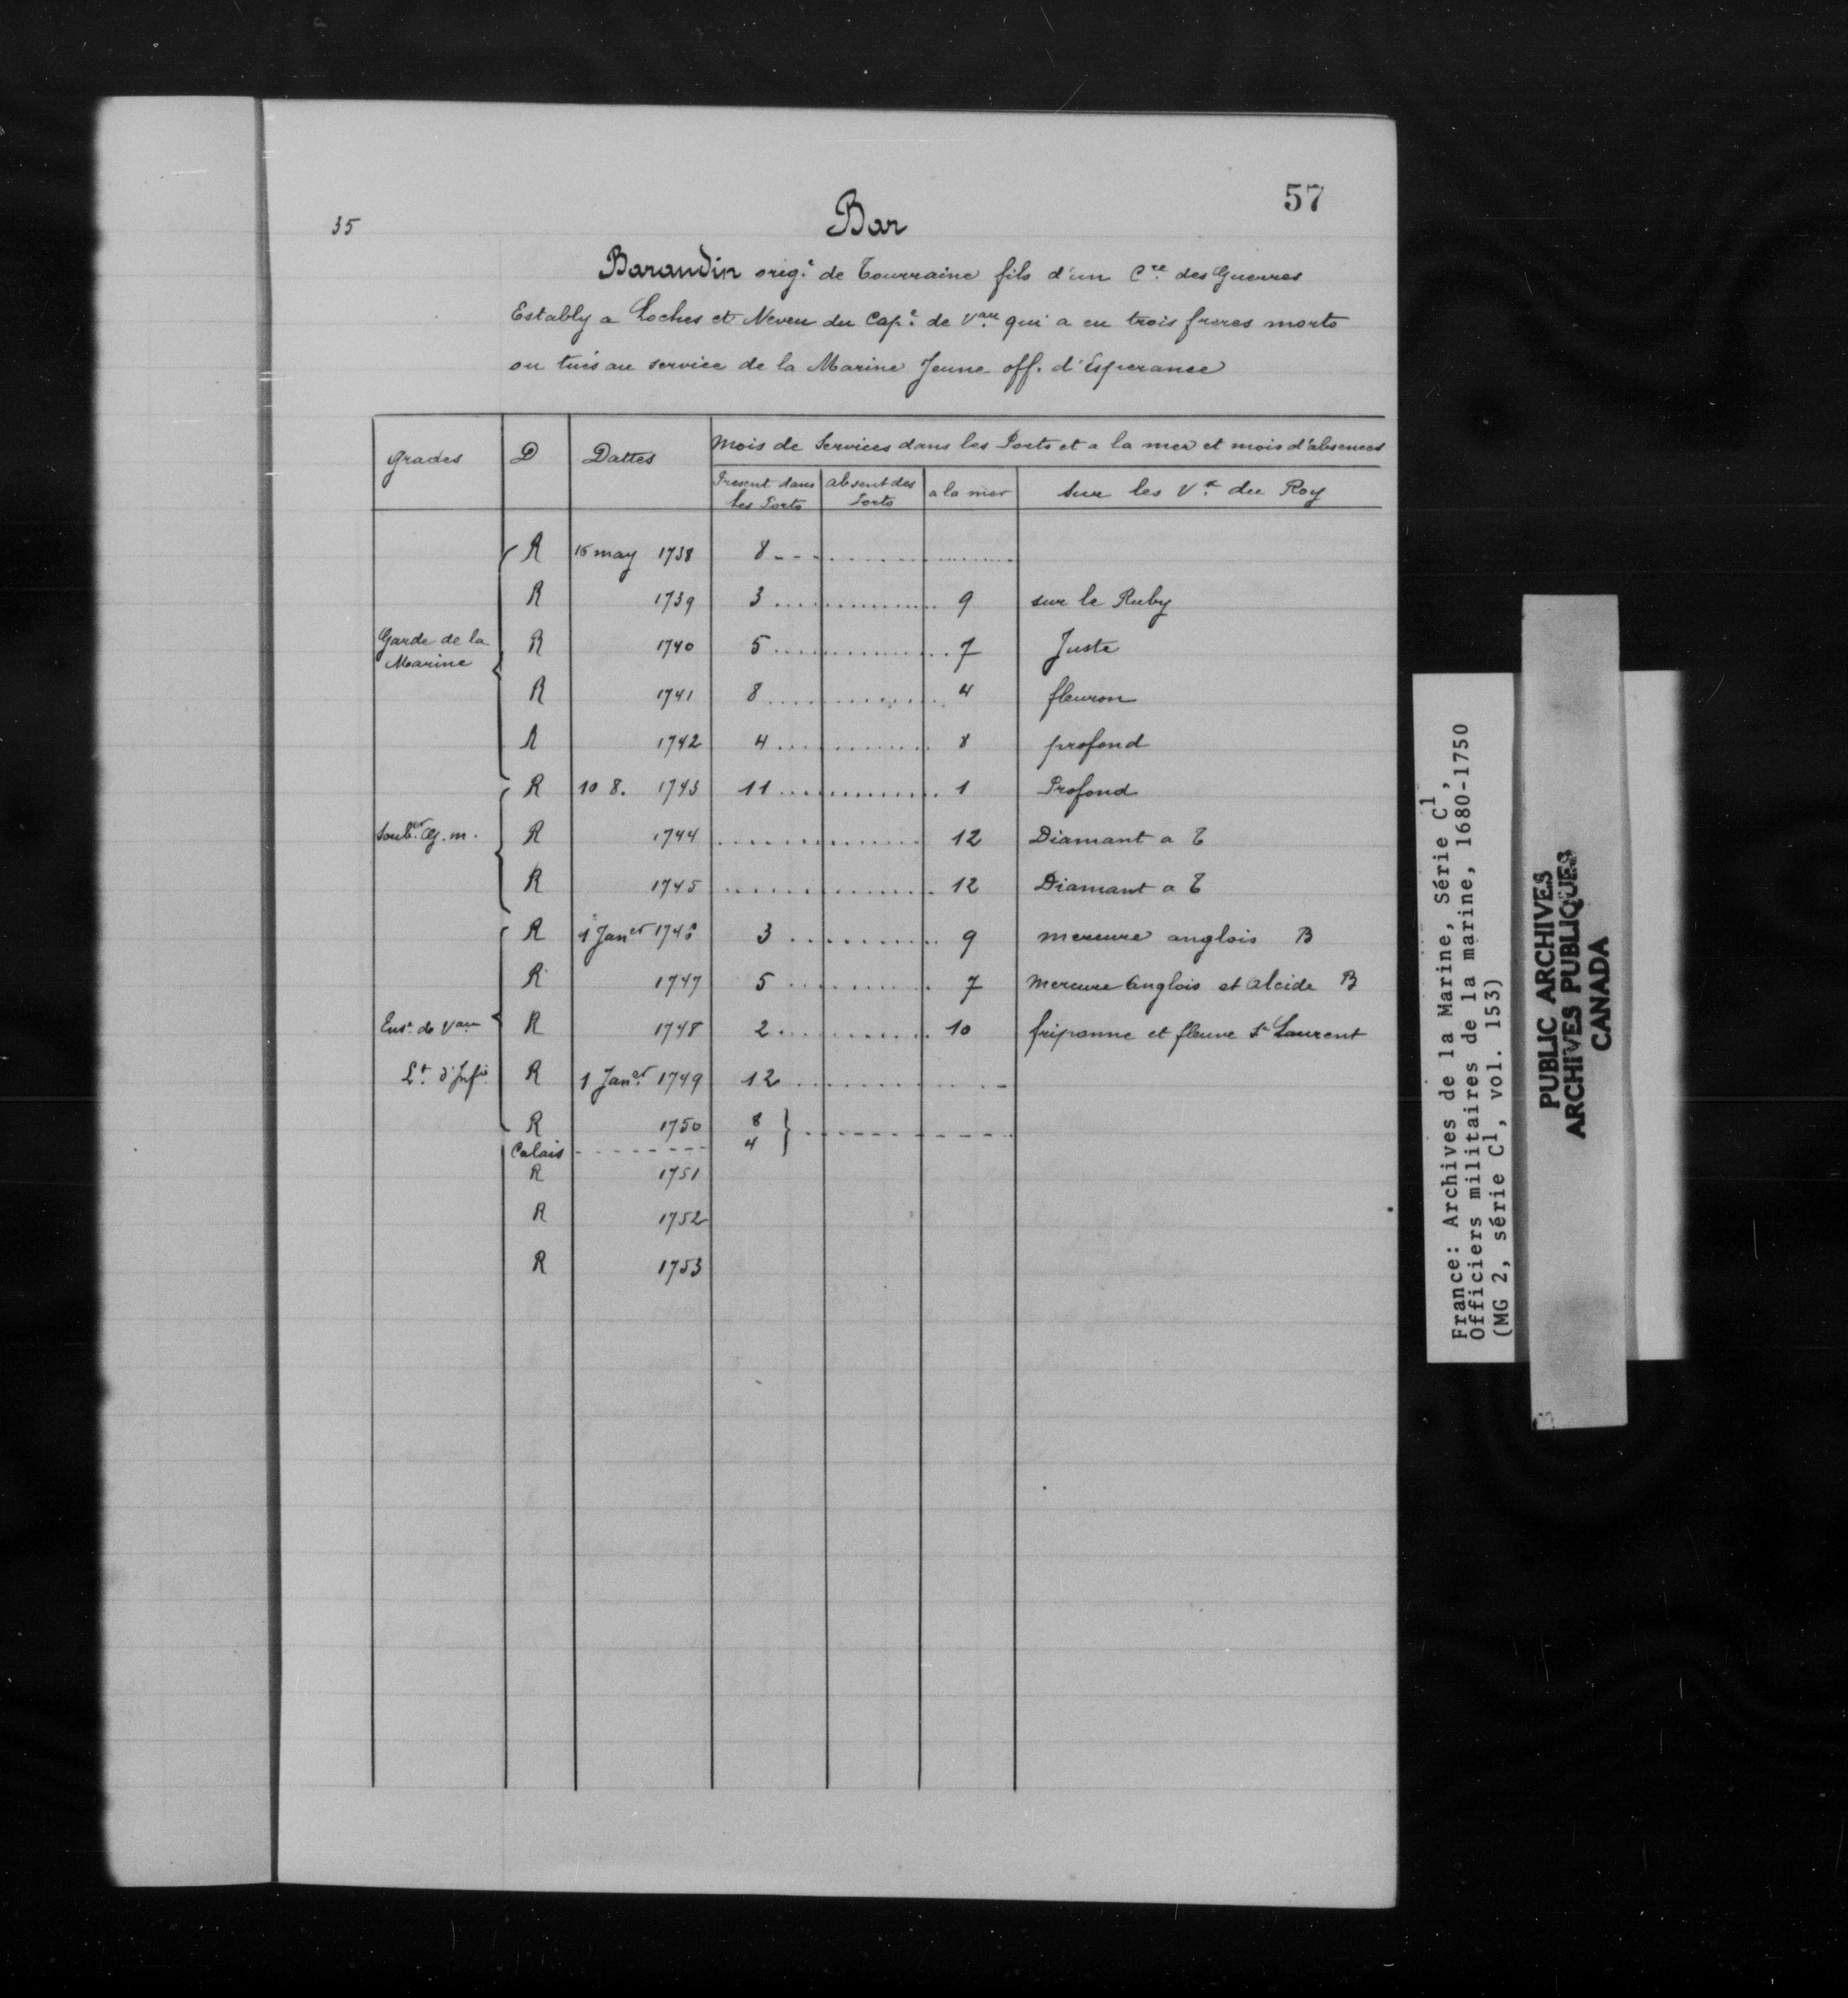 57
35
Bar
Baraudin orig.e de Tourraine fils d'un Cre. des Guerres
Estably a Loches et Neveu du Cap.e de Vau. qui a eu trois freres morts
ou tués au service de la Marine Jeune off. d'Esperance
Grades D Dattes Mois de Services dans les Ports et a la mer et mois d'absences
Present dans les Ports absent des Ports a la mer Sur les Vx. du Roy
R 16 may 1738 8
R 1739 3 9 sur le Ruby
Garde de la Marine R 1740 5 7 Juste
R 1741 8 4 fleuron
R 1742 4 8 profond
R 10 8. 1743 11 1 Profond
G. m. R 1744 12 Diamant a T
R 1745 12 Diamant a T
R 1 Janer 1746 3 9 mercure anglois B
R 1747 5 7 Mercure Anglois et Alcide B
Ens.e de Vau R 1748 2 10 friponne et fleuve St Laurent
Lt. d'Infie. R 1 Janer. 1749 12
R 1750 8
Calais 4
R 1751
R 1752
R 1753
France: Archives de la Marine, Série C1,
Officiers militaires de la marine, 1680-1750
(MG 2, série C1, vol. 153)
PUBLIC ARCHIVES
ARCHIVES PUBLIQUES
CANADA